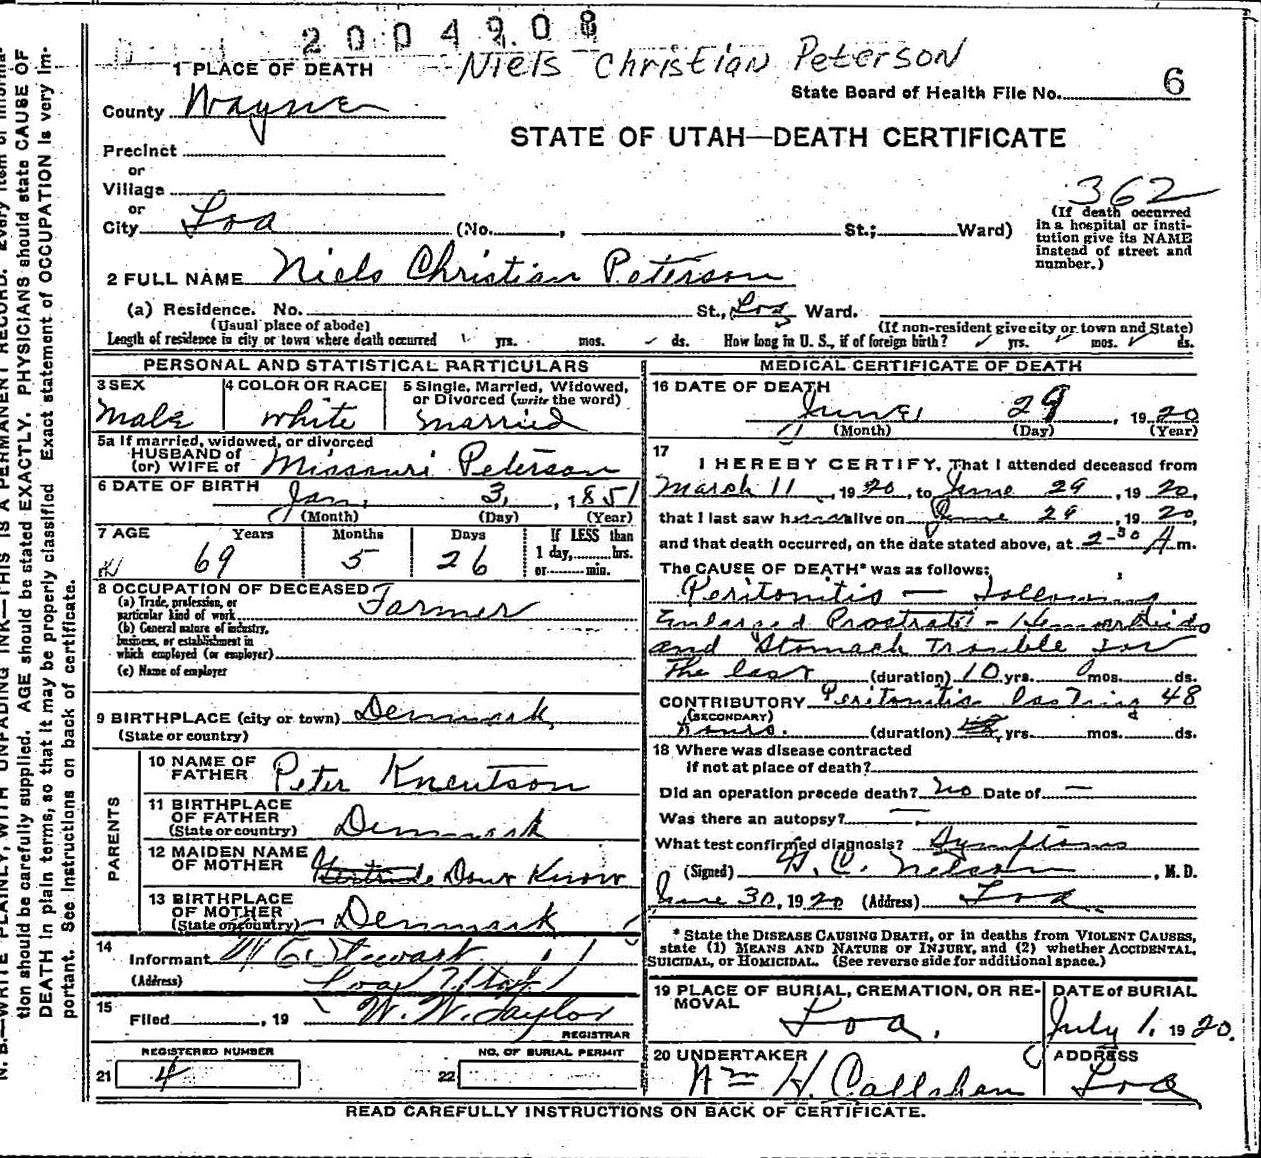 2004908
Niels Christian Peterson
1 PLACE OF DEATH
State Board of Health File No. 6
County Wayne
STATE OF UTAH—DEATH CERTIFICATE
Precinct
or
Village
or
City Loa (No. , St.; Ward)
362
(If death occurred in a hospital or institution give its NAME instead of street and number.)
2 FULL NAME Niels Christian Peterson
(a) Residence. No. St., Loa Ward.
(Usual place of abode) (If non-resident give city or town and State)
Length of residence in city or town where death occurred yrs. mos. ds. How long in U. S., if of foreign birth? yrs. mos. ds.
PERSONAL AND STATISTICAL PARTICULARS
3 SEX Male
4 COLOR OR RACE White
5 Single, Married, Widowed, or Divorced (write the word) Married
5a If married, widowed, or divorced
HUSBAND of
(or) WIFE of Missouri Peterson
6 DATE OF BIRTH Jan. 3, 1851
(Month) (Day) (Year)
7 AGE Years Months Days If LESS than
69 5 26 1 day, hrs.
or min.
8 OCCUPATION OF DECEASED
(a) Trade, profession, or
particular kind of work Farmer
(b) General nature of industry,
business, or establishment in
which employed (or employer)
(c) Name of employer
9 BIRTHPLACE (city or town) Denmark
(State or country)
PARENTS
10 NAME OF
FATHER Peter Kneutson
11 BIRTHPLACE
OF FATHER
(State or country) Denmark
12 MAIDEN NAME
OF MOTHER Gertrude Dont Know
13 BIRTHPLACE
OF MOTHER
(State or country) Denmark
14
Informant Stewart
(Address) Loa Utah
15
Filed , 19 W. W. Taylor
REGISTRAR
REGISTERED NUMBER NO. OF BURIAL PERMIT
21 4 22
MEDICAL CERTIFICATE OF DEATH
16 DATE OF DEATH
June 29, 1920
(Month) (Day) (Year)
17
I HEREBY CERTIFY, That I attended deceased from
March 11, 1920, to June 29, 1920,
that I last saw h alive on June 29, 1920,
and that death occurred, on the date stated above, at 2-30 A m.
The CAUSE OF DEATH* was as follows:
Peritonitis — Following
Enlarged Prostrate - Hemorrhoids
and Stomach Trouble for
The last (duration) 10 yrs. 0 mos. ds.
CONTRIBUTORY Peritonitis lasting 48
(SECONDARY)
hours. (duration) yrs. mos. ds.
18 Where was disease contracted
if not at place of death?
Did an operation precede death? no Date of —
Was there an autopsy? —
What test confirmed diagnosis? Symptoms
(Signed) C. Nelson, M. D.
June 30, 1920 (Address) Loa
* State the DISEASE CAUSING DEATH, or in deaths from VIOLENT CAUSES,
state (1) MEANS AND NATURE OF INJURY, and (2) whether ACCIDENTAL,
SUICIDAL, or HOMICIDAL. (See reverse side for additional space.)
19 PLACE OF BURIAL, CREMATION, OR REMOVAL
Loa.
DATE of BURIAL
July 1, 1920.
20 UNDERTAKER
Wm H. Callahan
ADDRESS
Loa
READ CAREFULLY INSTRUCTIONS ON BACK OF CERTIFICATE.
N. B.—WRITE PLAINLY, WITH UNFADING INK—THIS IS A PERMANENT RECORD. Every item of informa-
tion should be carefully supplied. AGE should be stated EXACTLY. PHYSICIANS should state CAUSE OF
DEATH in plain terms, so that it may be properly classified. Exact statement of OCCUPATION is very im-
portant. See instructions on back of certificate.